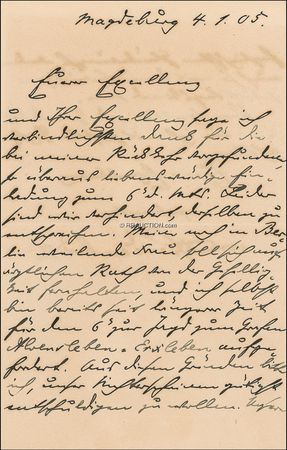 Magdeburg 4.1.05.
Euere Excellenz
und Ihrer Excellenz sage ich
verbindlichsten Dank für die
bei meiner Rückkehr vorgefundene
so überaus liebenswürdige Ein-
ladung zum 6 d. Mts. Leider
sind wir verhindert, derselben zu
entsprechen. Meine noch in Ber-
lin weilende Frau soll sich auf
ärztlichen Rath von der Gesellig-
keit fernhalten, und ich selbst
bin bereits seit längerer Zeit
für den 6 zur Jagd zum Grafen
Alvensleben-Erxleben aufge-
fordert. Aus diesen Gründen bitte
ich, unser Nichterscheinen gütigst
entschuldigen zu wollen.
RRAUCTION.com